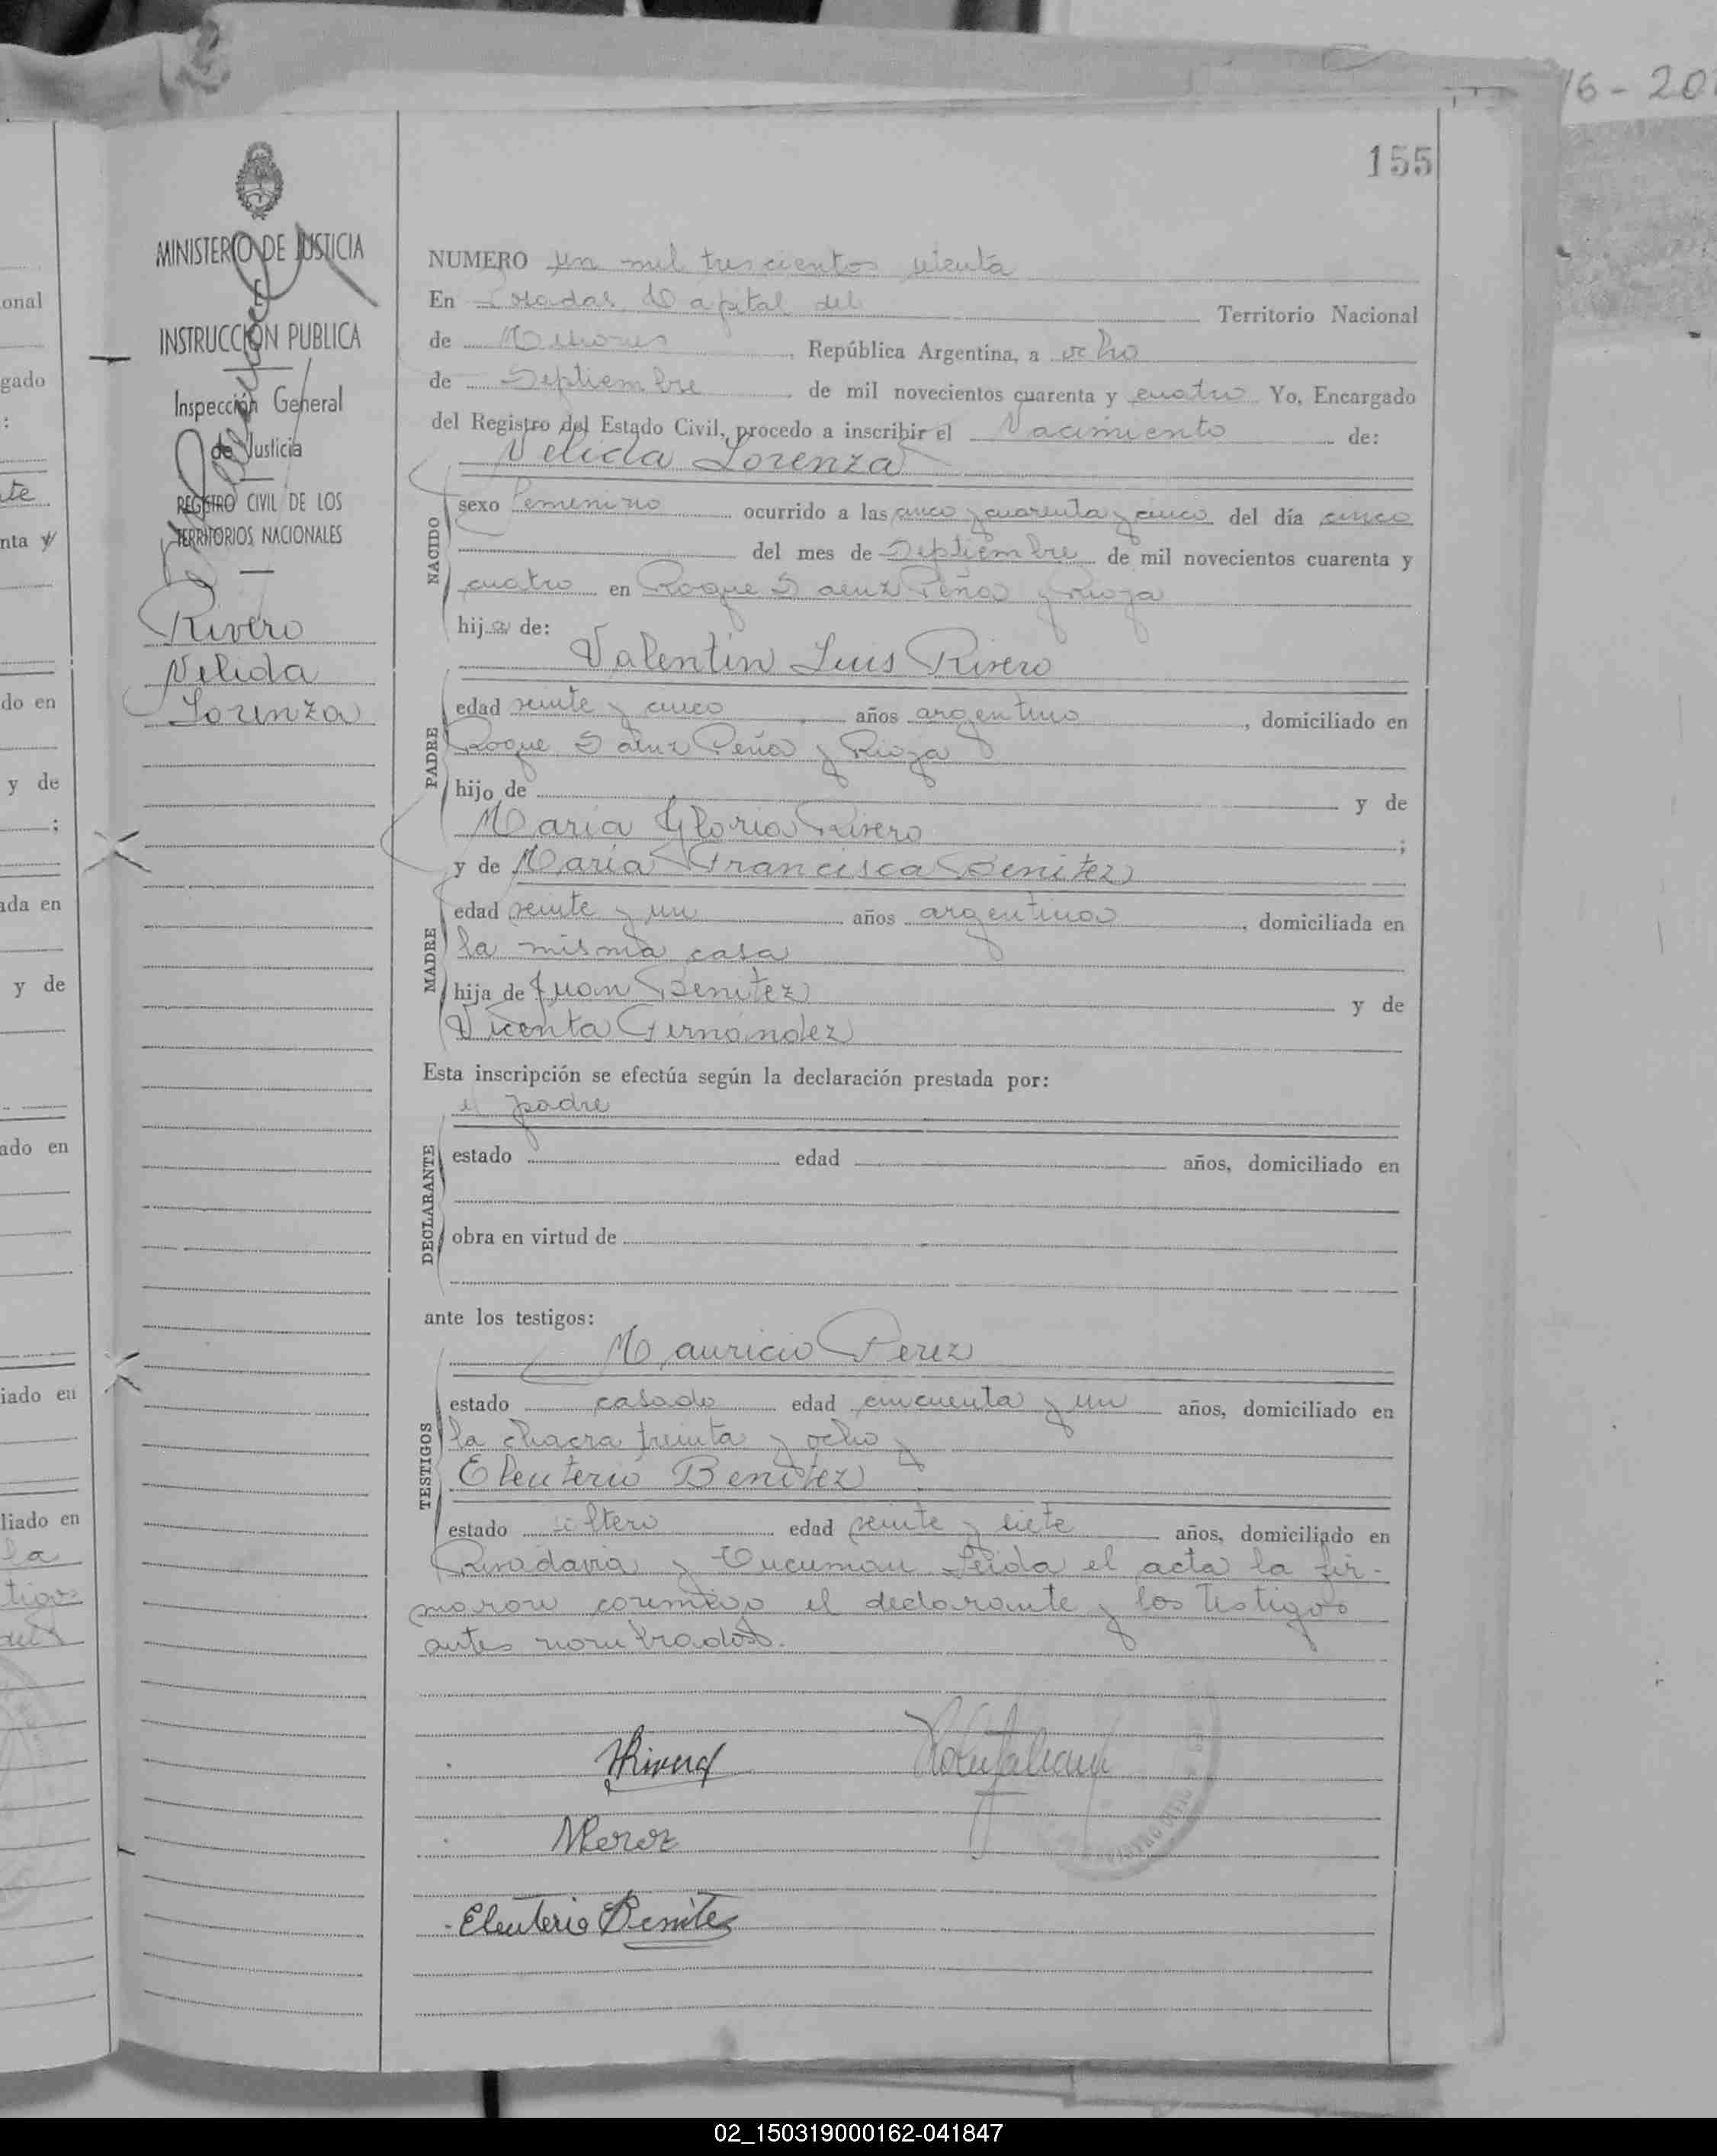 16-20
155
MINISTERIO DE JUSTICIA
E
INSTRUCCIÓN PUBLICA
Inspección General
de Justicia
REGISTRO CIVIL DE LOS
TERRITORIOS NACIONALES
Rivero
Nelida
Lorenza
NUMERO un mil trescientos
En Posadas Capital del Territorio Nacional
de Misiones República Argentina, a ocho
de Septiembre de mil novecientos cuarenta y cuatro Yo, Encargado
del Registro del Estado Civil, procedo a inscribir el Nacimiento de:
Nelida Lorenza
NACIDO
sexo femenino ocurrido a las cinco y cuarenta y cinco del día cinco
del mes de Septiembre de mil novecientos cuarenta y
cuatro en Roque Saenz Peña y Rioja
hija de:
Valentin Luis Rivero
PADRE
edad veinte y cinco años argentino, domiciliado en
Roque Saenz Peña y Rioja
hijo de y de
Maria Gloria Rivero;
y de Maria Francisca Benitez
MADRE
edad veinte y un años argentina, domiciliada en
la misma casa
hija de Juan Benitez y de
Vicenta Fernandez
Esta inscripción se efectúa según la declaración prestada por:
el padre
DECLARANTE
estado edad años, domiciliado en
obra en virtud de
ante los testigos:
Mauricio Perez
TESTIGOS
estado casado edad cincuenta y un años, domiciliado en
la chacra treinta y ocho y
Eleuterio Benitez
estado soltero edad veinte y siete años, domiciliado en
Rivadavia y Tucuman Leida el acta la fir-
maron conmigo el declarante y los testigos
antes nombrados.
VLRivero
MPerez
Eleuterio Benitez
onal
gado
:
te
nta y
do en
y de
;
ada en
y de
ado en
iado en
liado en
la
tigos
02_150319000162-041847